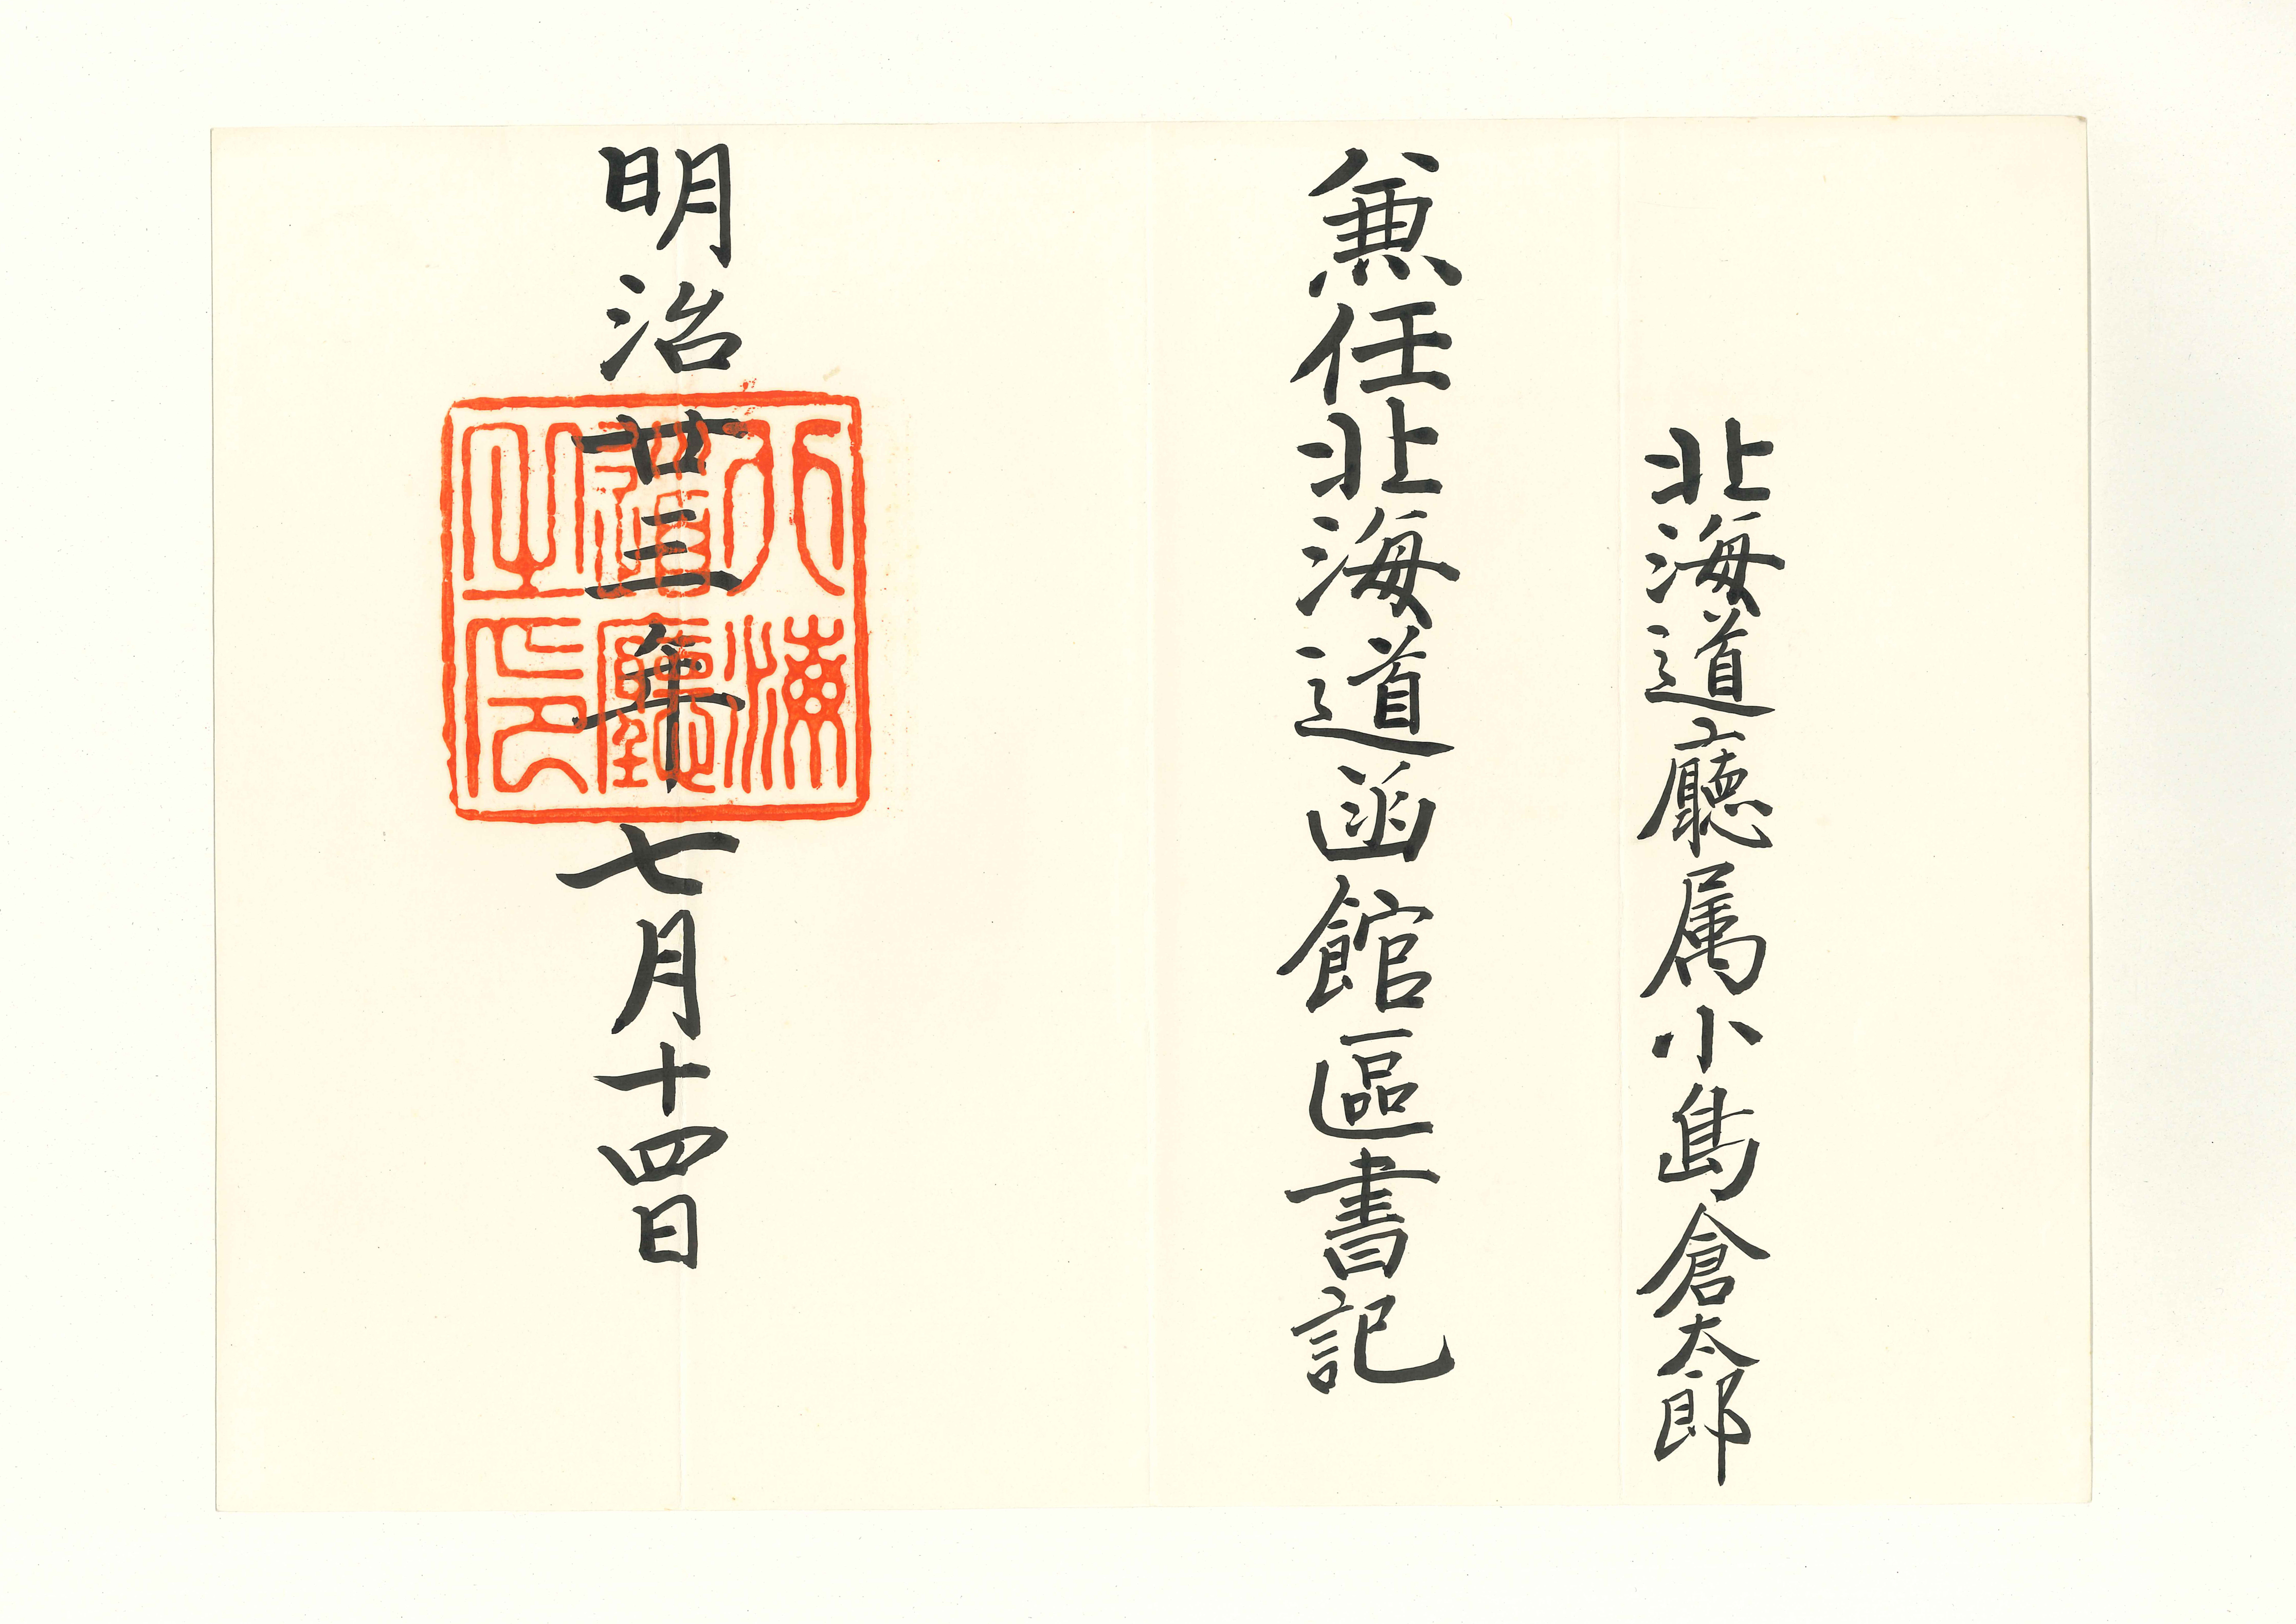 北海道廳属小島倉太郎
兼任北海道函館區書記
明治廿三年七月十四日
北海道廳之印